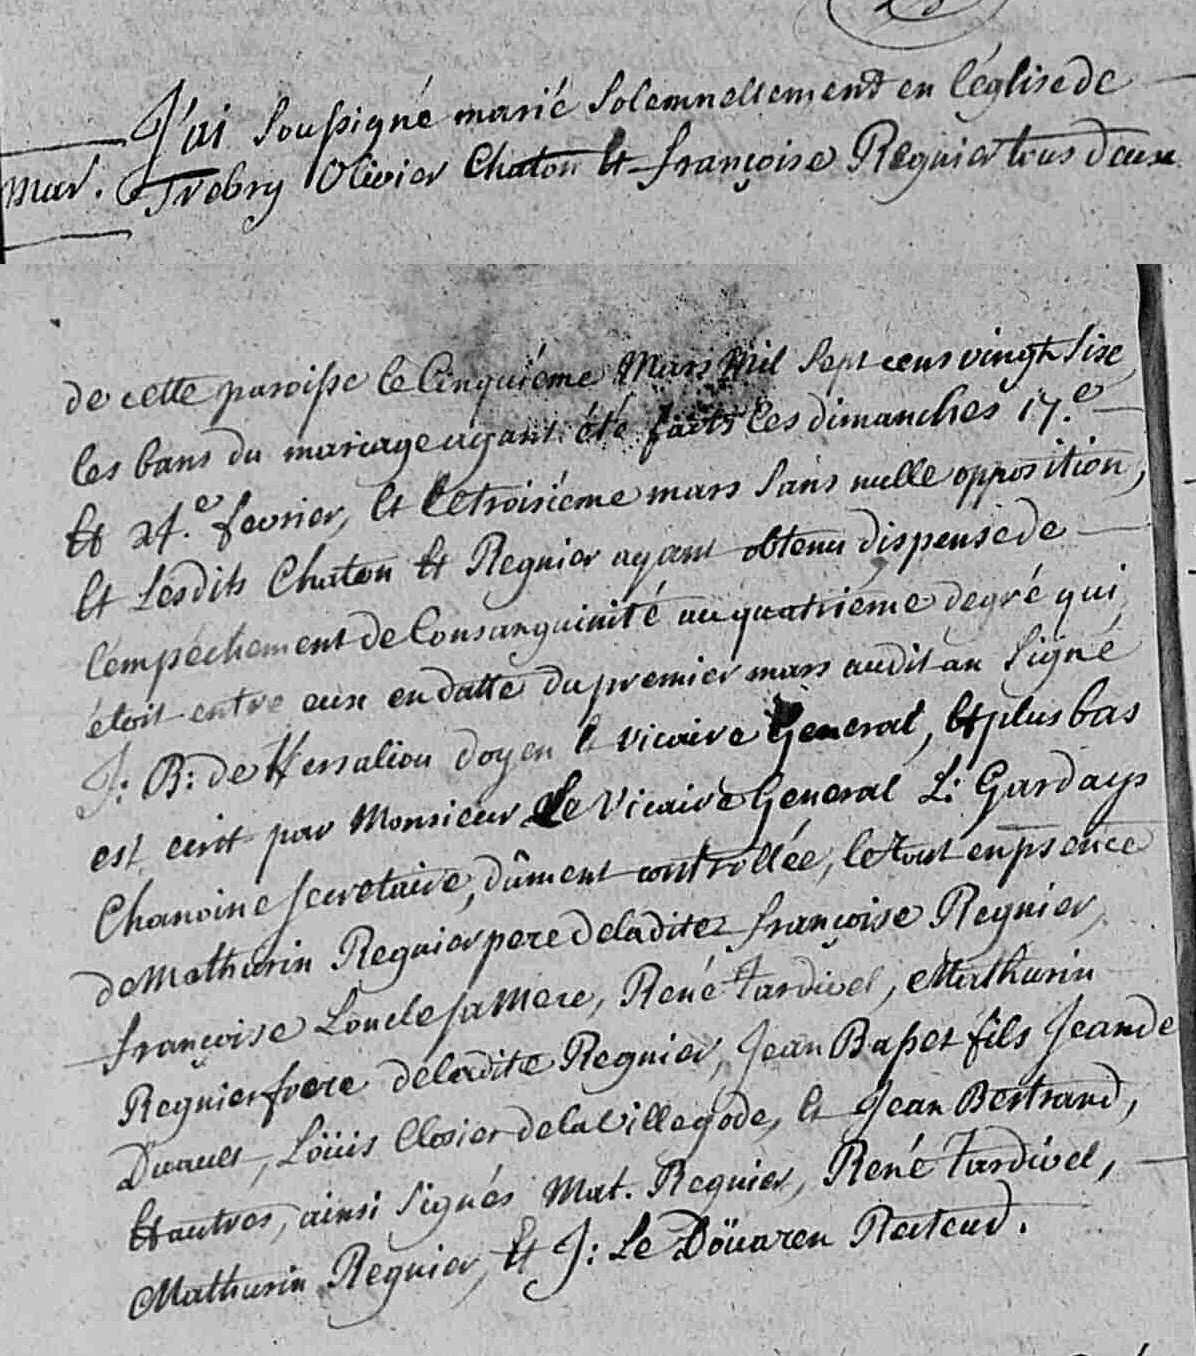 J'ai soussigné marié solemnellement en l'église de
mar. Trebry Olivier Chaton et françoise Regnier tous deux
de cette paroisse le Cinquiéme Mars Mil Sept cens vingt Six
les bans du mariage ayant été faits les dimanches 17.e
Et 24.e fevrier, et le troisiéme mars sans nulle opposition,
Et lesdits Chaton Et Regnier ayant obtenu dispense de
l'empéchement de Consanguinité au quatriéme degré qui
étoit entre eux en datte du premier mars audit an Signé
J: B: de doyen et vicaire General, Et plus bas
est ecrit par Monsieur Le Vicaire General L: Gardays
Chanoine secretaire, dûment controllée, le tout en psence
de Mathurin Regnier pere de ladite françoise Regnier,
françoise Loncle sa Mere, René Tardivel, Mathurin
Regnier frere de ladite Regnier, Jean fils Jean de
Duault, Loüis Closier de la Villegode, et Jean Bertrand,
Et autres, ainsi Signés Mat. Regnier, René Tardivel,
Mathurin Regnier, Et J: Le Doüaren Recteur.